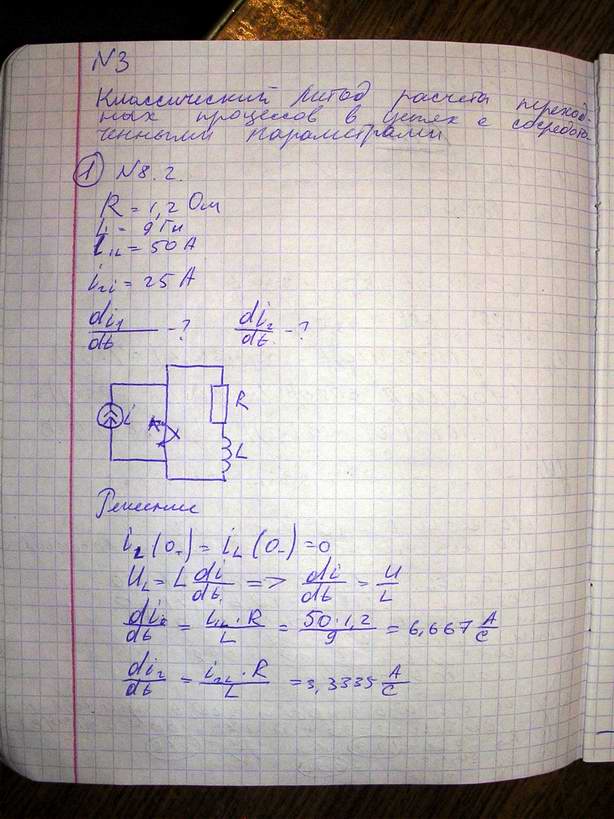 N3
Классический метод расчета переход-
ных процессов в цепях с сосредото-
ченными параметрами
1 N8.2.
R = 1,2 Ом
L = 9 Гн
i₁ₗ = 50 А
i₂ₗ = 25 А
di₁/dt - ? di₂/dt - ?
i R
K L
Решение
i₂(0₊) = i_L(0₋) = 0
U_L = L di/dt => di/dt = U/L
di₁/dt = i₁ₗ·R/L = 50·1,2/9 = 6,667 А/с
di₂/dt = i₂ₗ·R/L = 3,3335 А/с